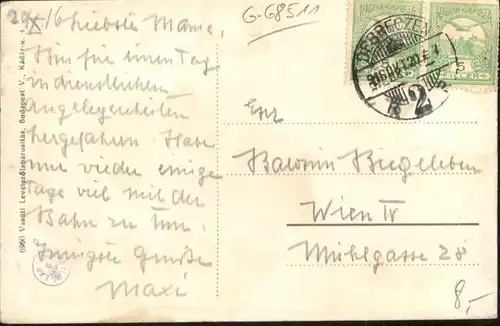 20/X 16
G-68511
Liebste Mama,
Bin für einen Tag
in dienstlichen
Angelegenheiten
hergefahren. Habe
nur wieder einige
Tage viel mit der
Bahn zu tun.
Innigste Grüße
Maxi
DEBRECZEN
916 OKT. 20
2
5
5
Baronin Biegeleben
Wien IV
Mühlgasse 28
8,-
6960 Vasúti Levelezőlapárusítás, Budapest V., Kádár-u.